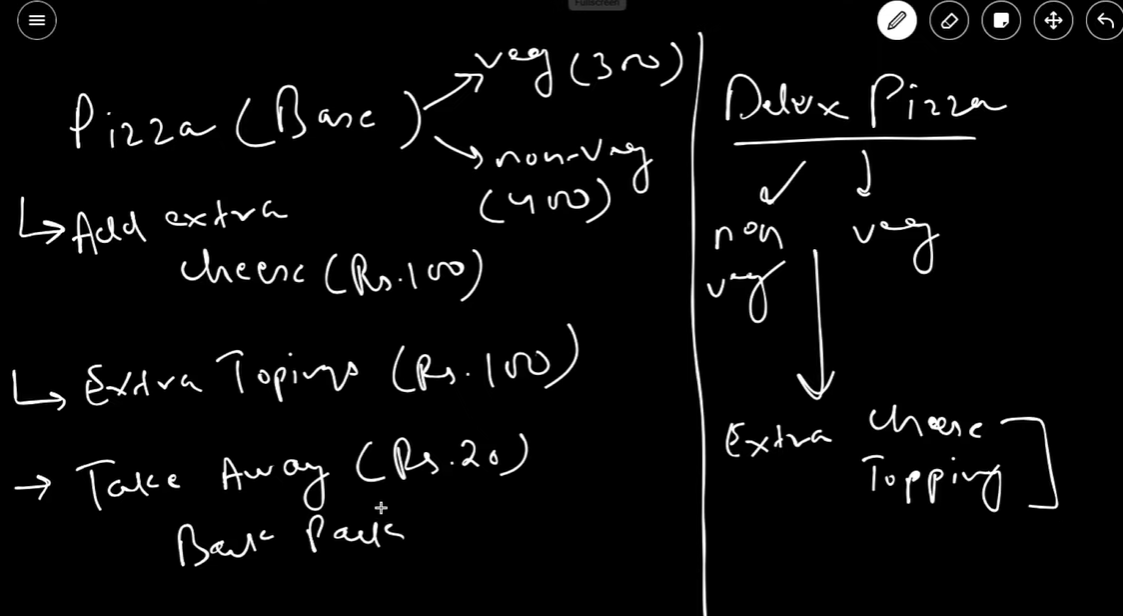 Fullscreen
Pizza (Base)
veg (300)
non-veg
(400)
Add extra
cheese (Rs.100)
Extra Topings (Rs.100)
Take Away (Rs.20)
Back Pack
Delux Pizza
non
veg
veg
Extra cheese
Topping